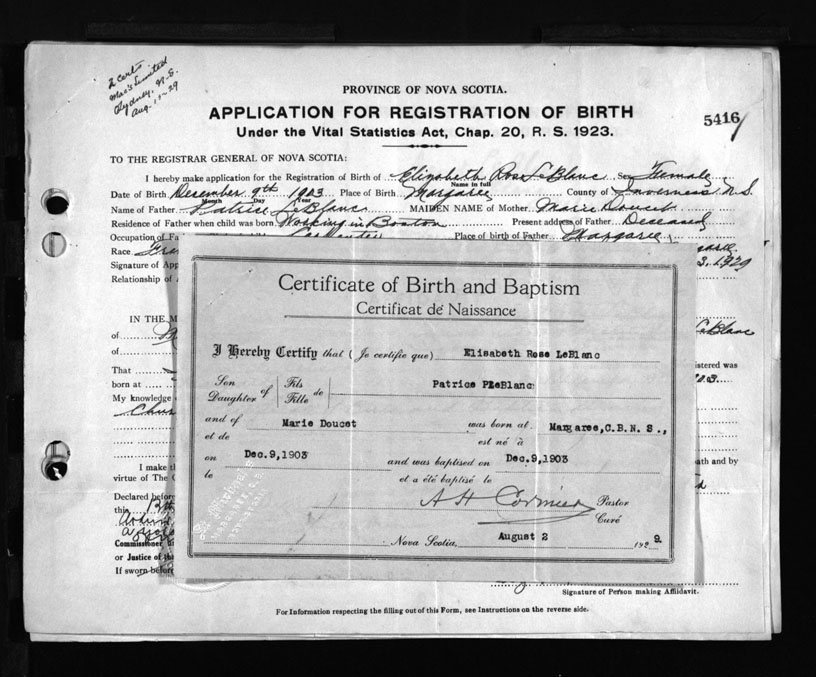 2 Cert
Aug. 15-29
PROVINCE OF NOVA SCOTIA.
APPLICATION FOR REGISTRATION OF BIRTH
5416
Under the Vital Statistics Act, Chap. 20, R. S. 1923.
TO THE REGISTRAR GENERAL OF NOVA SCOTIA:
I hereby make application for the Registration of Birth of Elizabeth Rose LeBlanc Sex Female
Name in full
Date of Birth December 9th 1903 Place of Birth Margaree County of Inverness N.S.
Month Day Year
Name of Father Patrice LeBlanc MAIDEN NAME of Mother Marie Doucet
Residence of Father when child was born Working in Boston Present address of Father Deceased
Occupation of Place of birth of Father Margaree
Race
Signature of 1929
Relationship of
Certificate of Birth and Baptism
Certificat de Naissance
IN THE
of LeBlanc
I Hereby Certify that (Je certifie que) Elisabeth Rose LeBlanc
of
That istered was
Son Daughter of Fils Fille de Patrice PLeBlanc
born at
My knowledge
and of Marie Doucet was born at Margaree, C.B. N S.,
et de est né à
on Dec.9,1903 and was baptised on Dec.9,1903
le et a été baptisé le
ath and by
I make
virtue of The
A H Cormier Pastor
Curé
Declared before
this
Nova Scotia, August 2 192 9.
Commissioner
or Justice of the
If sworn before
Signature of Person making Affidavit.
For Information respecting the filling out of this Form, see Instructions on the reverse side.